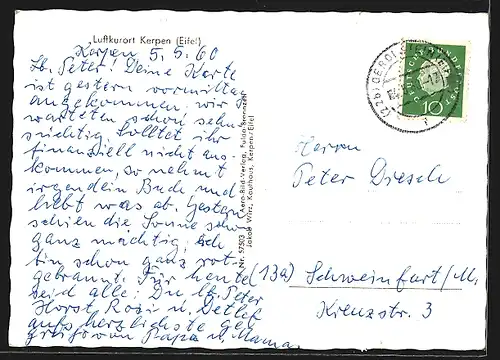 Luftkurort Kerpen (Eifel)
Kerpen 5.5.60
Lb. Peter! Deine Karte
ist gestern vormittag
angekommen. wir
warteten schon sehn-
süchtig. Solltet ihr
finanziell nicht aus-
kommen, so nehmt
irgendein Buch und
hebt was ab. Gestern
schien die Sonne schon
ganz mächtig, ich
bin schon ganz rot-
gebrannt. Für heute
seid alle: Du, lb. Peter
Horst, Rosi u. Detlef
aufs herzlichste ge-
grüsst von Papa u. Mama.
Nr. 57503 Aero-Bild-Verlag, Fulda
Jakob Wirz, Kaufhaus, Kerpen/Eifel
(22b) GEROLSTEIN
10
Herrn
Peter Dresch
(13a) Schweinfurt/M.
Kreuzstr. 3